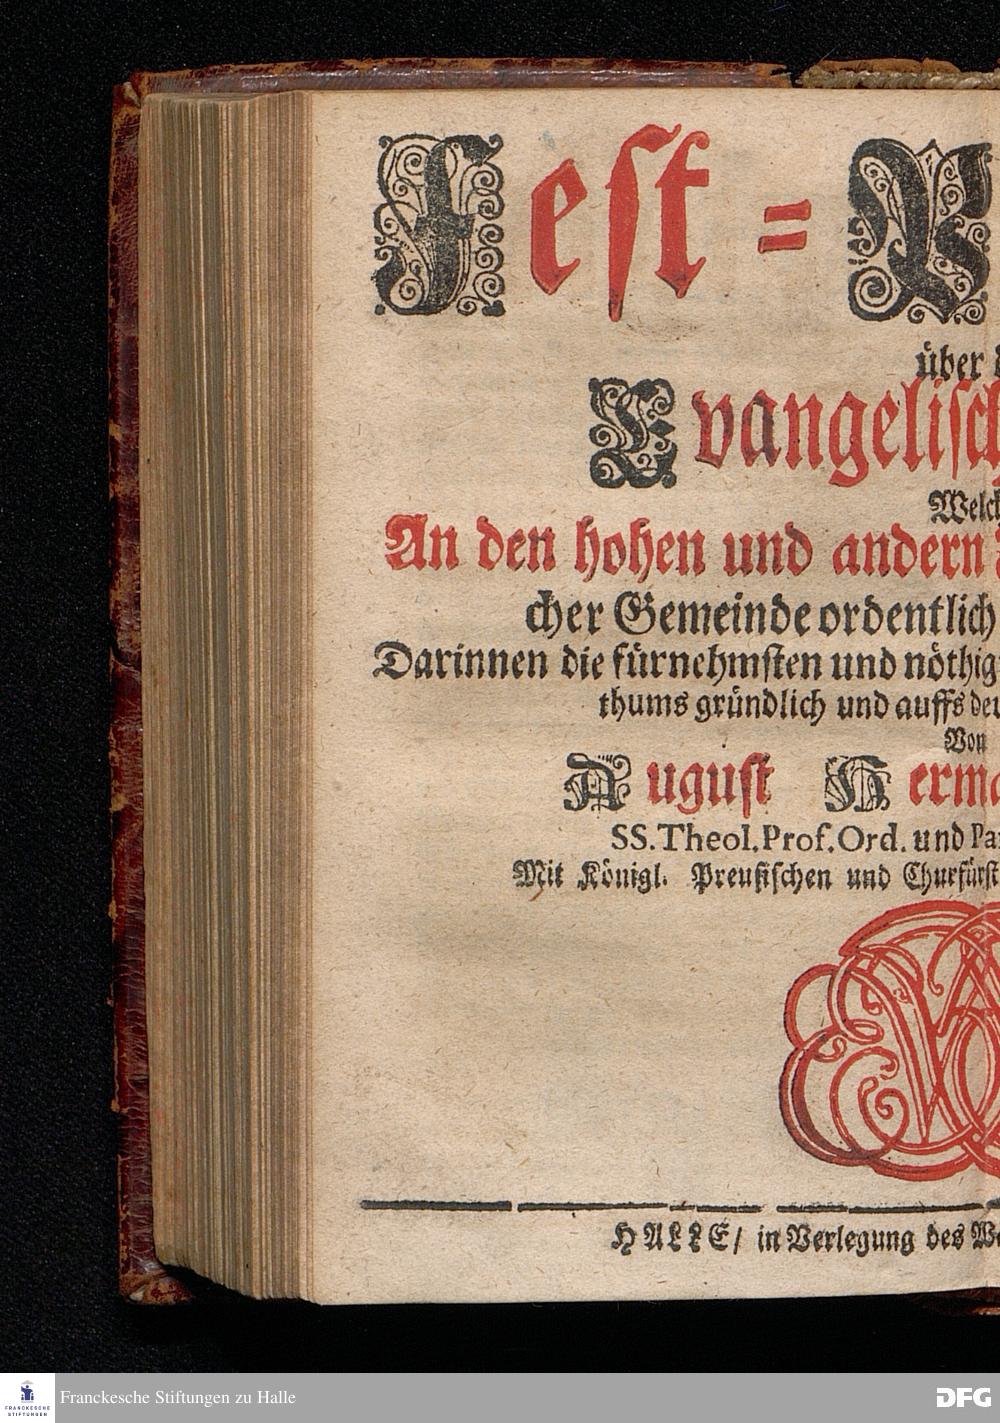 Fest=
über
Evangelisch
Welch
An den hohen und andern
cher Gemeinde ordentlich
Darinnen die fürnehmsten und nöthig
thums gründlich und auffs deu
Von
August Herma
SS. Theol. Prof. Ord. und Pa
Mit Königl. Preußischen und Churfürst
HALLE/ in Verlegung des
Franckesche Stiftungen zu Halle
FRANCKESCHE
STIFTUNGEN
DFG